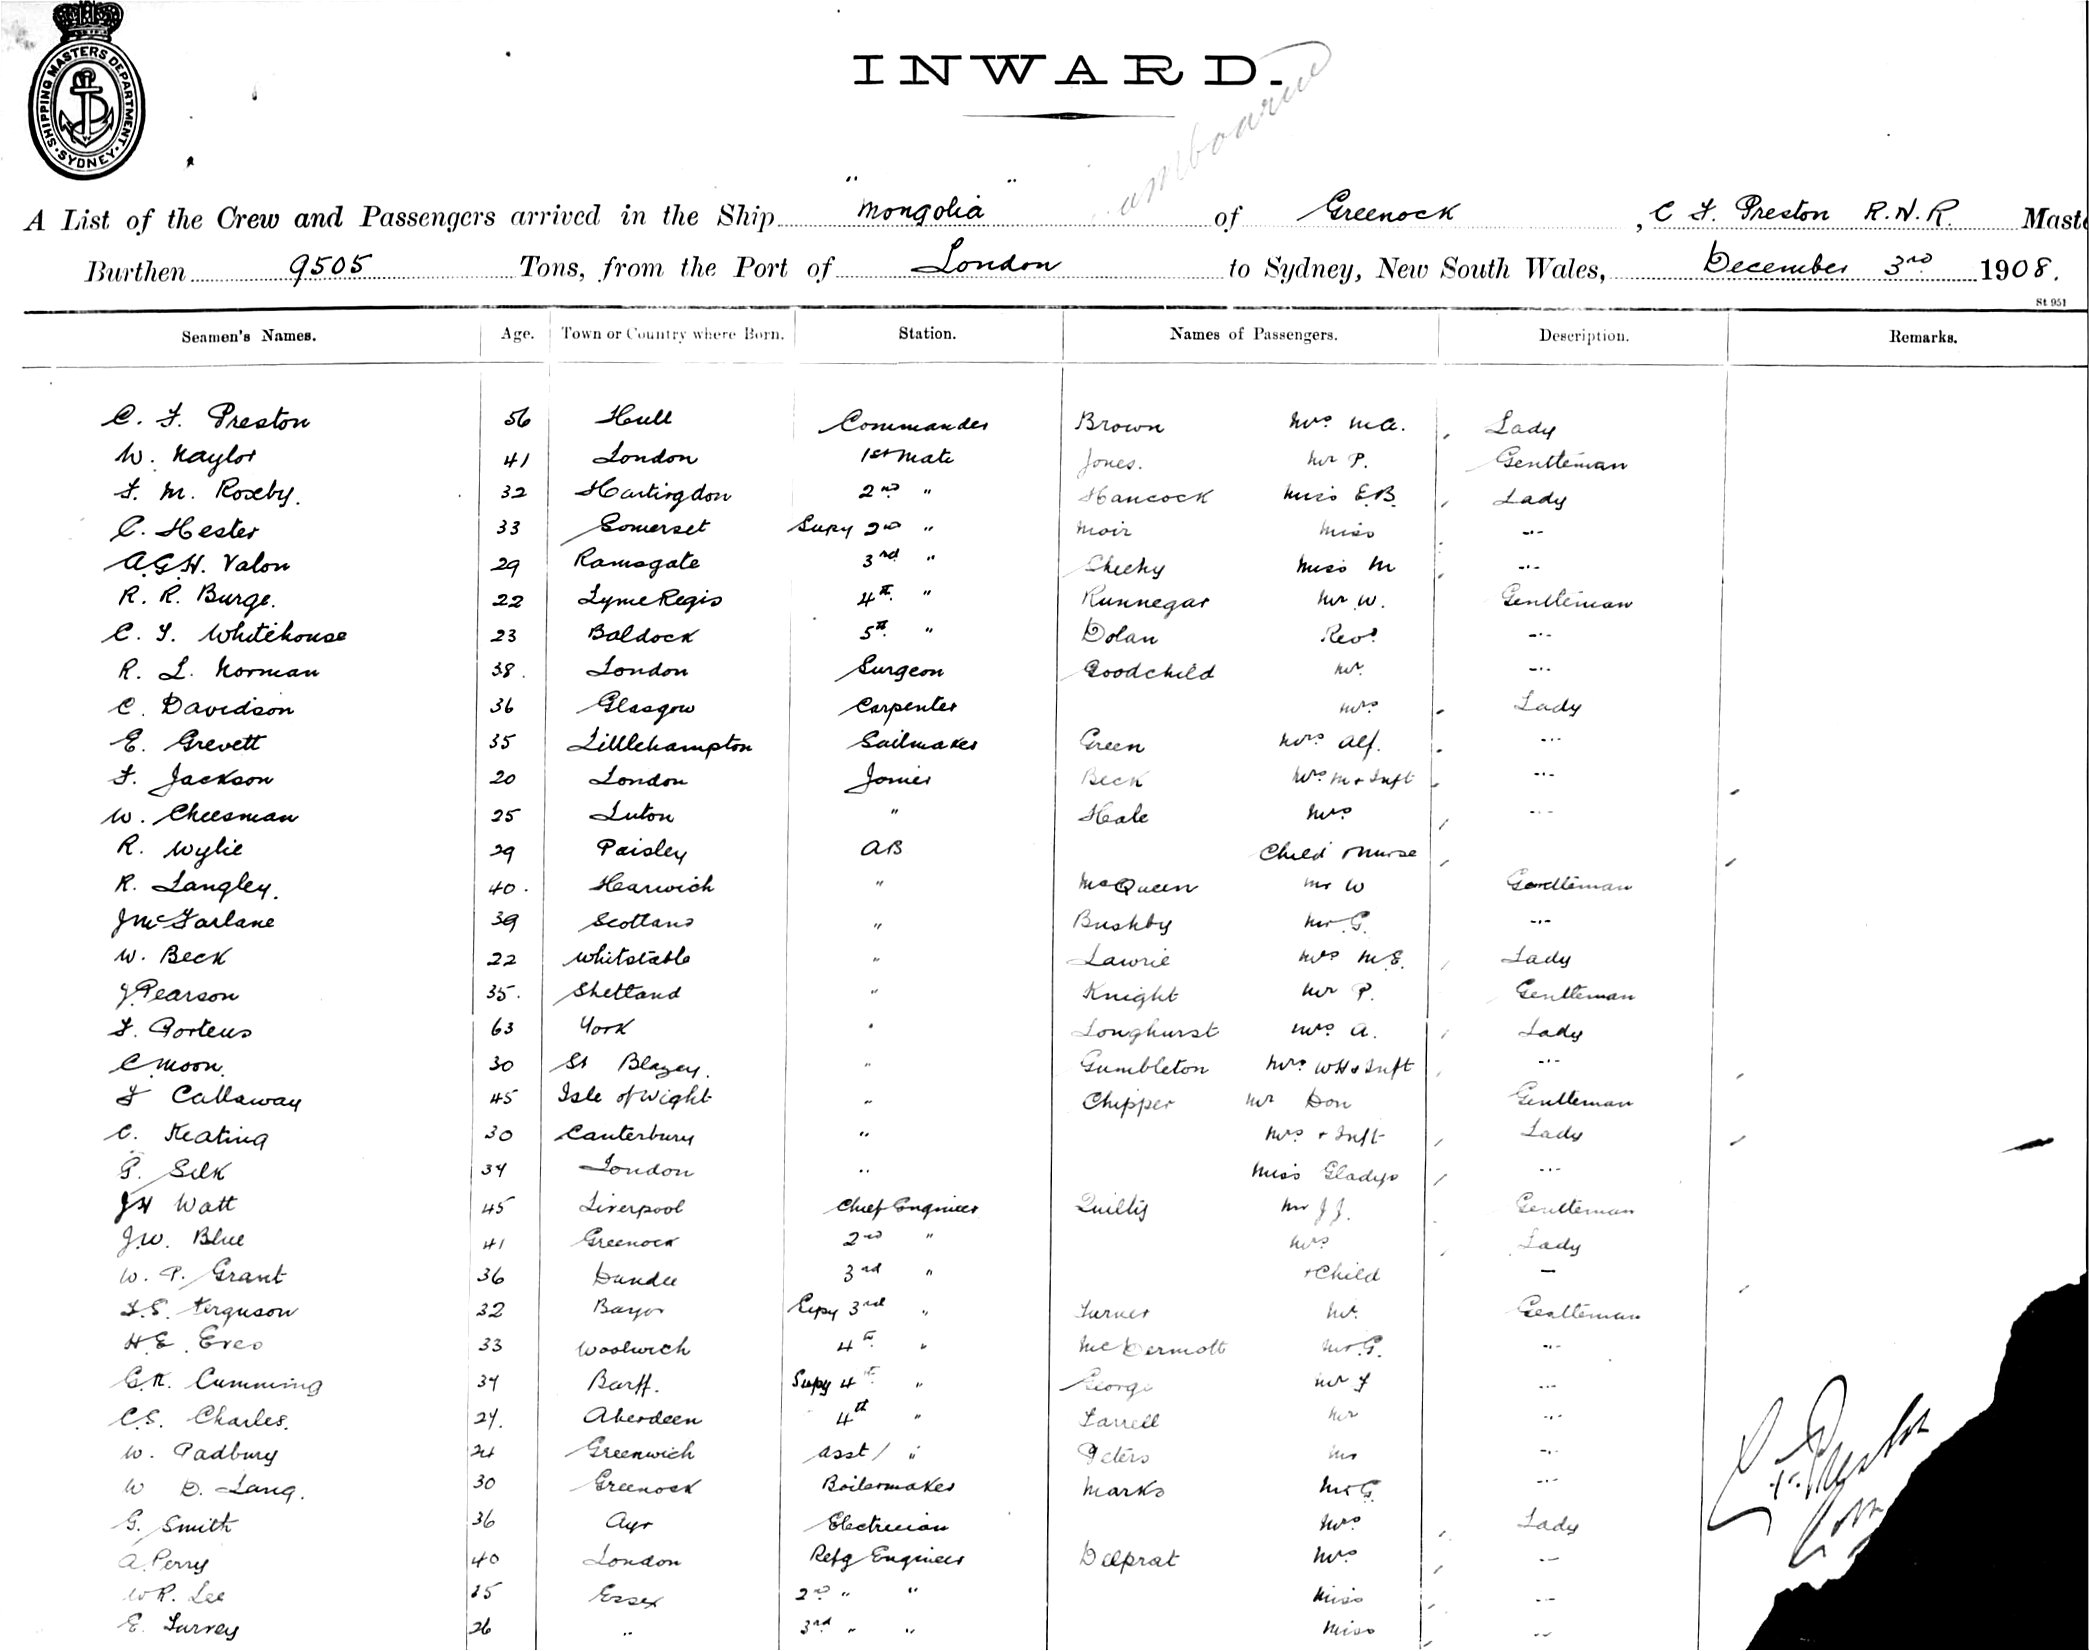 SHIPPING MASTERS DEPARTMENT. SYDNEY
INWARD.
A List of the Crew and Passengers arrived in the Ship "Mongolia" of Greenock, C F. Preston R.N.R. Maste
Burthen 9505 Tons, from the Port of London to Sydney, New South Wales, December 3rd 1908.
St 951
Seamen's Names. Age. Town or Country where Born. Station. Names of Passengers. Description. Remarks.
C. F. Preston 56 Hull Commander Brown Mrs M A. Lady
W. Naylor 41 London 1st Mate Jones. Mr P. Gentleman
F. M. Roxby. 32 Hartingdon 2nd " Hancock Miss E.B. Lady
C. Hester 33 Somerset Supy 2nd " Moir Miss -"-
A.G.H. Valon 29 Ramsgate 3rd " Sheehy Miss M -"-
R. R. Burge. 22 Lyme Regis 4th " Runnegar Mr W. Gentleman
C. F. Whitehouse 23 Baldock 5th " Dolan Revd -"-
R. L. Norman 38. London Surgeon Goodchild Mr. -"-
C. Davidson 36 Glasgow Carpenter Mrs Lady
E. Grevett 35 Littlehampton Sailmaker Green Mrs Alf. -"-
F. Jackson 20 London Joiner Beck Mrs M + Inft -"-
W. Cheesman 25 Luton " Heale Mrs -"-
R. Wylie 29 Paisley AB Child + Nurse
R. Langley. 40. Harwich " McQueen Mr W Gentleman
J McFarlane 39 Scotland " Bushby Mr G. -"-
W. Beck 22 Whitstable " Lawrie Mrs M.E. Lady
J. Pearson 35. Shetland " Knight Mr P. Gentleman
F. Porteus 63 York " Longhurst Mrs A. Lady
C. Moon. 30 St Blazey. " Gumbleton Mrs WH + Inft -"-
F Callaway 45 Isle of Wight " Chipper Mr Don Gentleman
C. Keating 30 Canterbury " Mrs + Inft Lady
G. Silk 34 London " Miss Gladys -"-
JH Watt 45 Liverpool Chief Engineer Mr J J. Gentleman
J.W. Blue 41 Greenock 2nd " Mrs Lady
W. P. Grant 36 Dundee 3rd " + Child —
Ferguson 32 3rd " Turner Mr. Gentleman
H.E. 33 Woolwich 4th " McDermott Mr G. -"-
G.K. Cumming 34 Supy 4th " George Mr F -"-
C.S. Charles. 24. Aberdeen 4th " Farrell Mr -"-
W. Padbury 24 Greenwich Asst / " Peters Mr -"-
W D. Lang. 30 Greenock Boilermaker Marks Mr G. -"-
G. Smith 36 Ayr Electrician Mrs Lady
A. Perry 40 London Refg Engineer Delprat Mrs -"-
W.R. Lee 35 Essex 2nd " " Miss -"-
E. Turvey 26 " 3rd " " Miss -"-